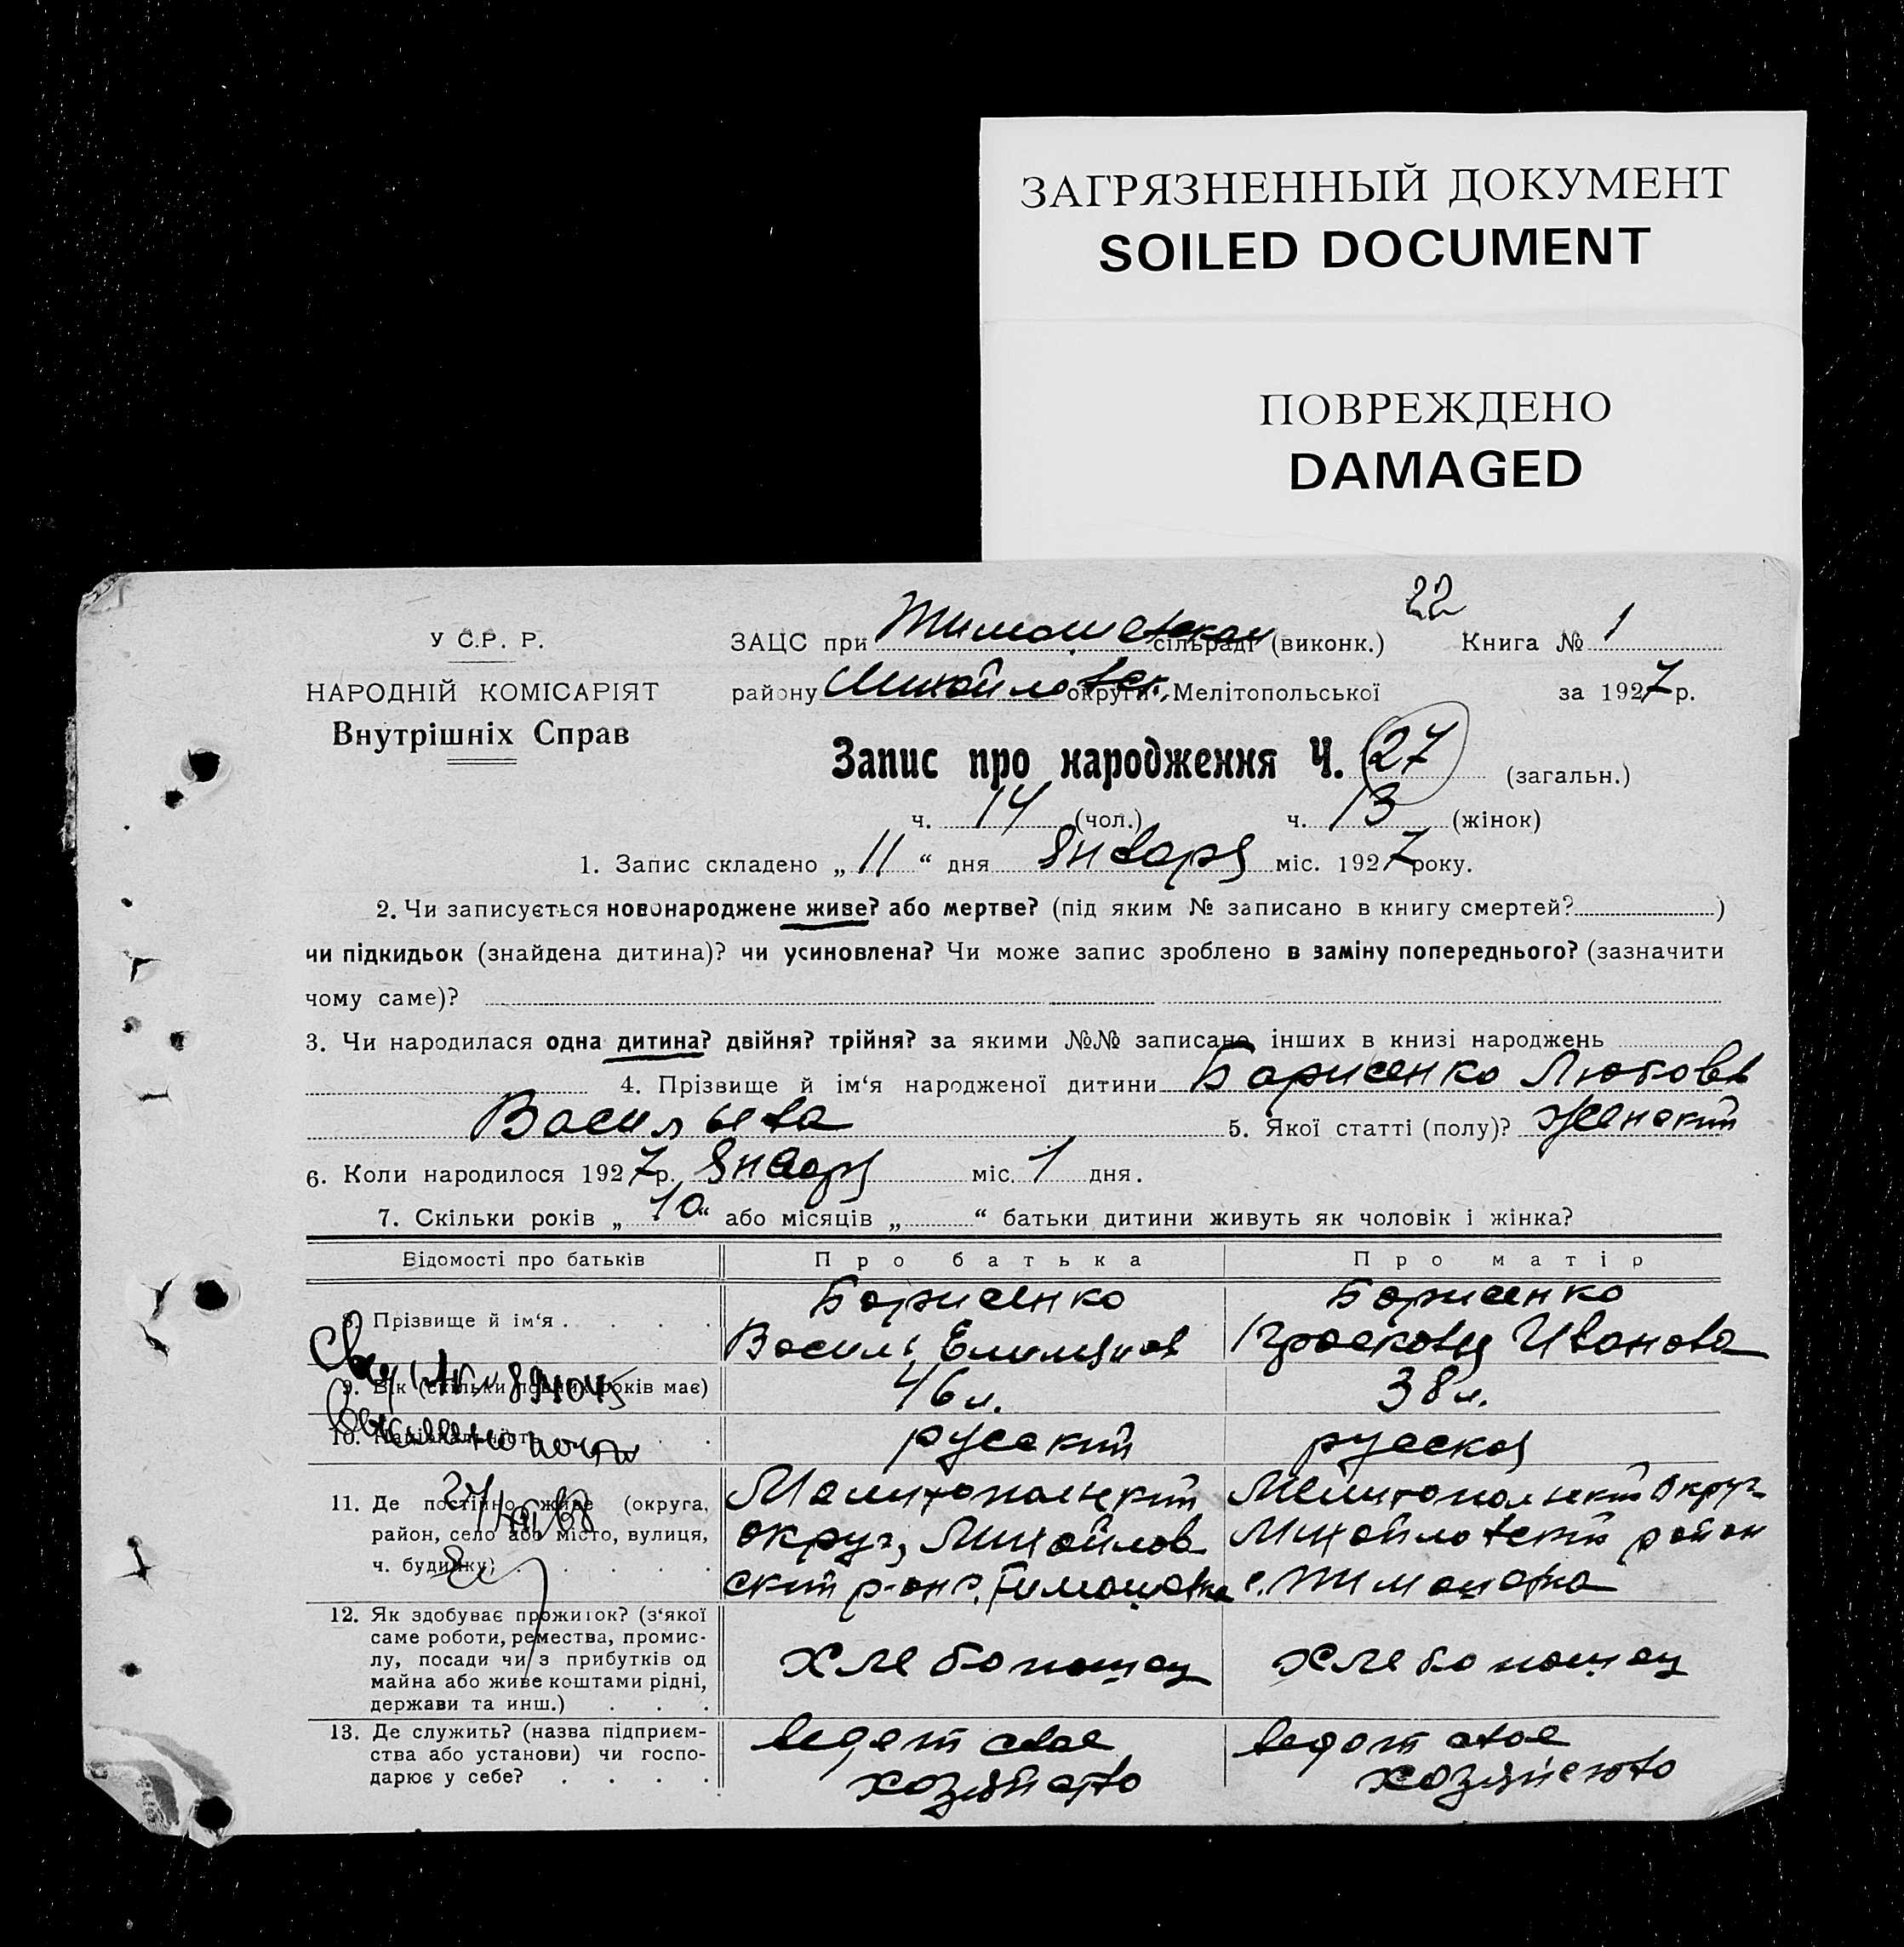 ЗАГРЯЗНЕННЫЙ ДОКУМЕНТ
SOILED DOCUMENT
ПОВРЕЖДЕНО
DAMAGED
22
У С.Р. Р.
ЗАЦС при сільраді (виконк.) Книга № 1
НАРОДНІЙ КОМІСАРІЯТ
району Михайловск. округи Мелітопольської за 1927 р.
Внутрішніх Справ
Запис про народження Ч. 27 (загальн.)
ч. 14 (чол.) ч. 13 (жінок)
1. Запис складено „ 11 “ дня Января міс. 1927 року.
2. Чи записується новонароджене живе? або мертве? (під яким № записано в книгу смертей? )
чи підкидьок (знайдена дитина)? чи усиновлена? Чи може запис зроблено в заміну попереднього? (зазначити
чому саме)?
3. Чи народилася одна дитина? двійня? трійня? за якими №№ записано інших в книзі народжень
4. Прізвище й ім‘я народженої дитини Борисенко Любовь
Васильева 5. Якої статті (полу)? Женский
6. Коли народилося 1927 р. Января міс. 1 дня.
7. Скільки років „ 10 “ або місяців „ “ батьки дитини живуть як чоловік і жінка?
Відомості про батьків Про батька Про матір
8. Прізвище й ім‘я . . . . Борисенко Борисенко
Василь Емильянов Прасковья Иванова
9. Вік (скільки повних років має) 46 л. 38 л.
10. Національність . . . русский русская
11. Де постійно живе (округа, Мелитопольский Мелитопольский округ
район, село або місто, вулиця, округ, Михайлов Михайловский район
ч. будинку) . . . . . ский р-он с. Тимошовка с. Тимошовка
12. Як здобуває прожиток? (з‘якої
саме роботи, ремества, промис-
лу, посади чи з прибутків од хлебопашец хлебопашец
майна або живе коштами рідні,
держави та инш.) . . .
13. Де служить? (назва підприєм- ведет свое ведет свое
ства або установи) чи госпо- хозяйство хозяйство
дарює у себе? . . . .